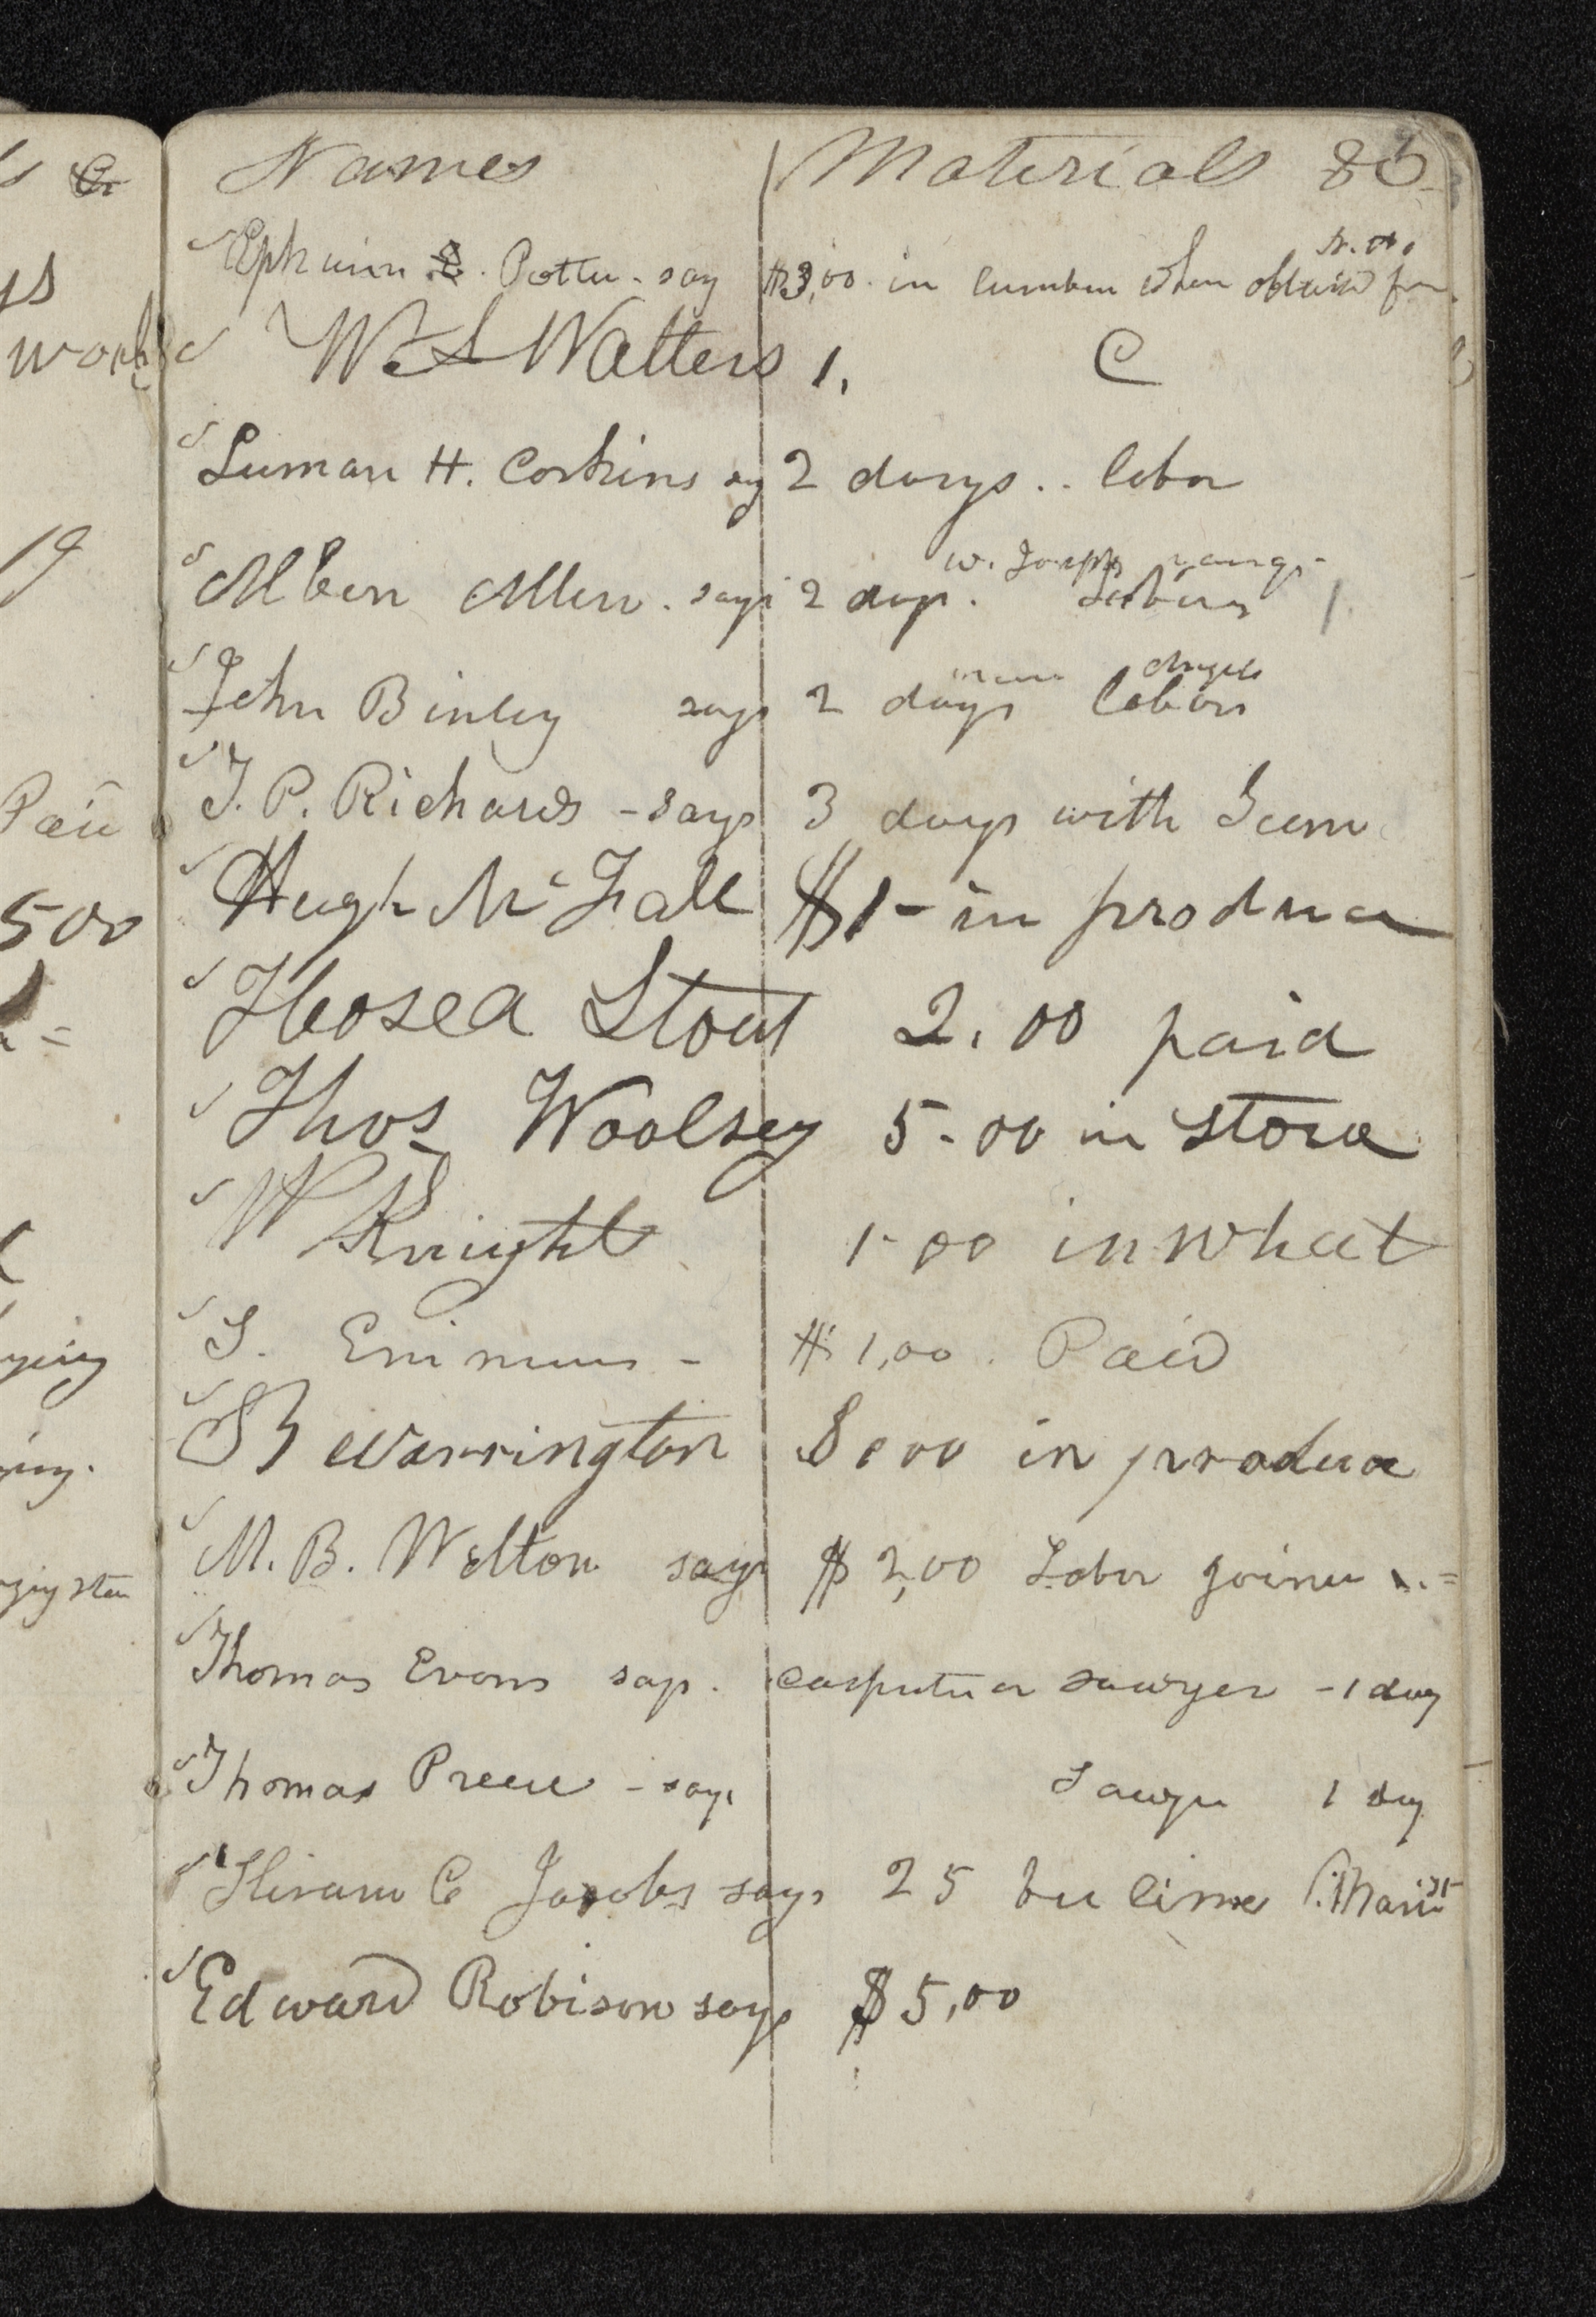 Names Materials &c
Ephraim Potter - say $3,00 in lumber when obtained from
W S Watters 1. C
Luman H. Corkins say 2 days .. labor
W. Joseph Young
Alben Allen. says 2 days. Labour
John Binley says 2 days labor
J. P. Richards - says 3 days with Team
Hugh McFall $1- in produce
Hosea Stout 2.00 paid
Thos Woolsey 5-00 in store
W Knight 1-00 in wheat
S. Emmons - $1,00. Paid
B Warrington 8.00 in produce
M. B. Welton says $2,00 Labor joiner
Thomas Evans says. carpenter sawyer - 1 day
Thomas Preece - says Sawyer 1 day
Hiram C Jacobs says 25 bu lime
Edward Robison says $5,00
work
19
Paid
500